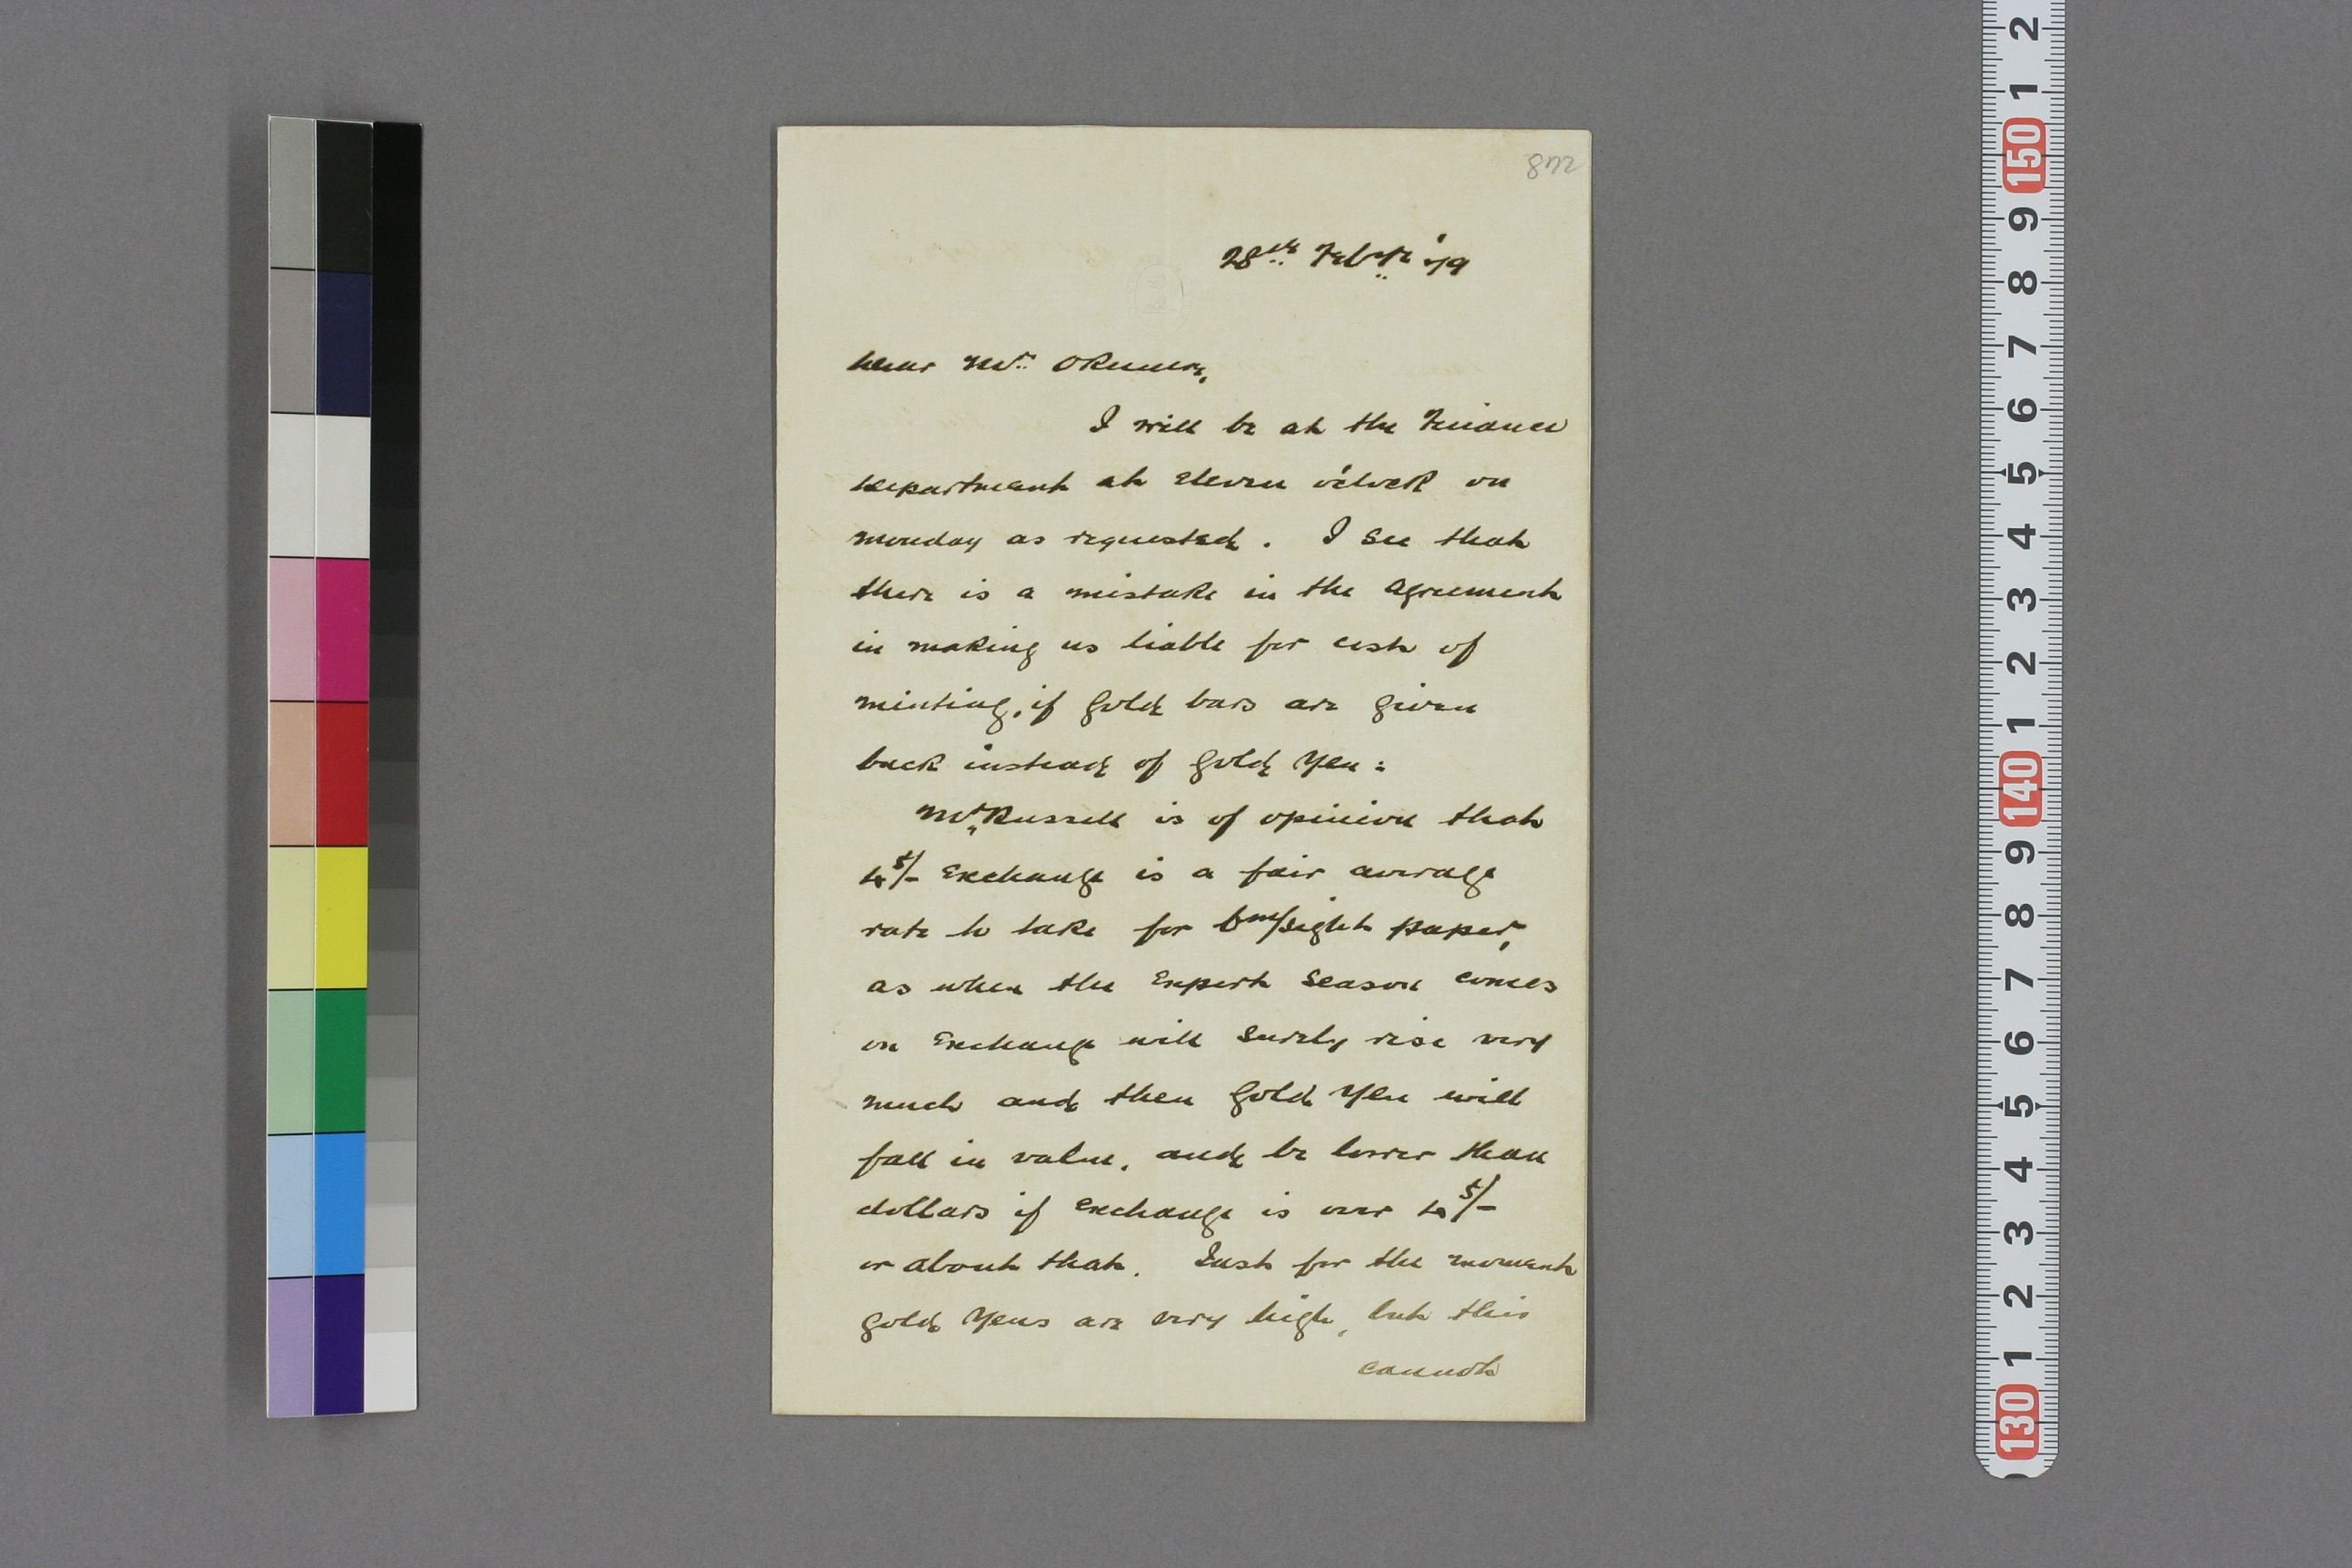 872
28th Febry '79
Dear Mr. Okuma,
I will be at the Finance
Department at Eleven o'clock on
Monday as requested. I see that
there is a mistake in the agreement
in making us liable for cost of
minting, if gold bars are given
back instead of gold Yen:
Mr. Russell is of opinion that
4 5/- Exchange is a fair average
rate to take for 6 m/sight paper,
as when the Export Season comes
on Exchange will surely rise very
much and then gold Yen will
fall in value, and be lower than
dollars if Exchange is over 4 5/-
or about that. Just for the moment
gold Yens are very high, but this
cannot
2
1
150
9
8
7
6
5
4
3
2
1
140
9
8
7
6
5
4
3
2
1
130